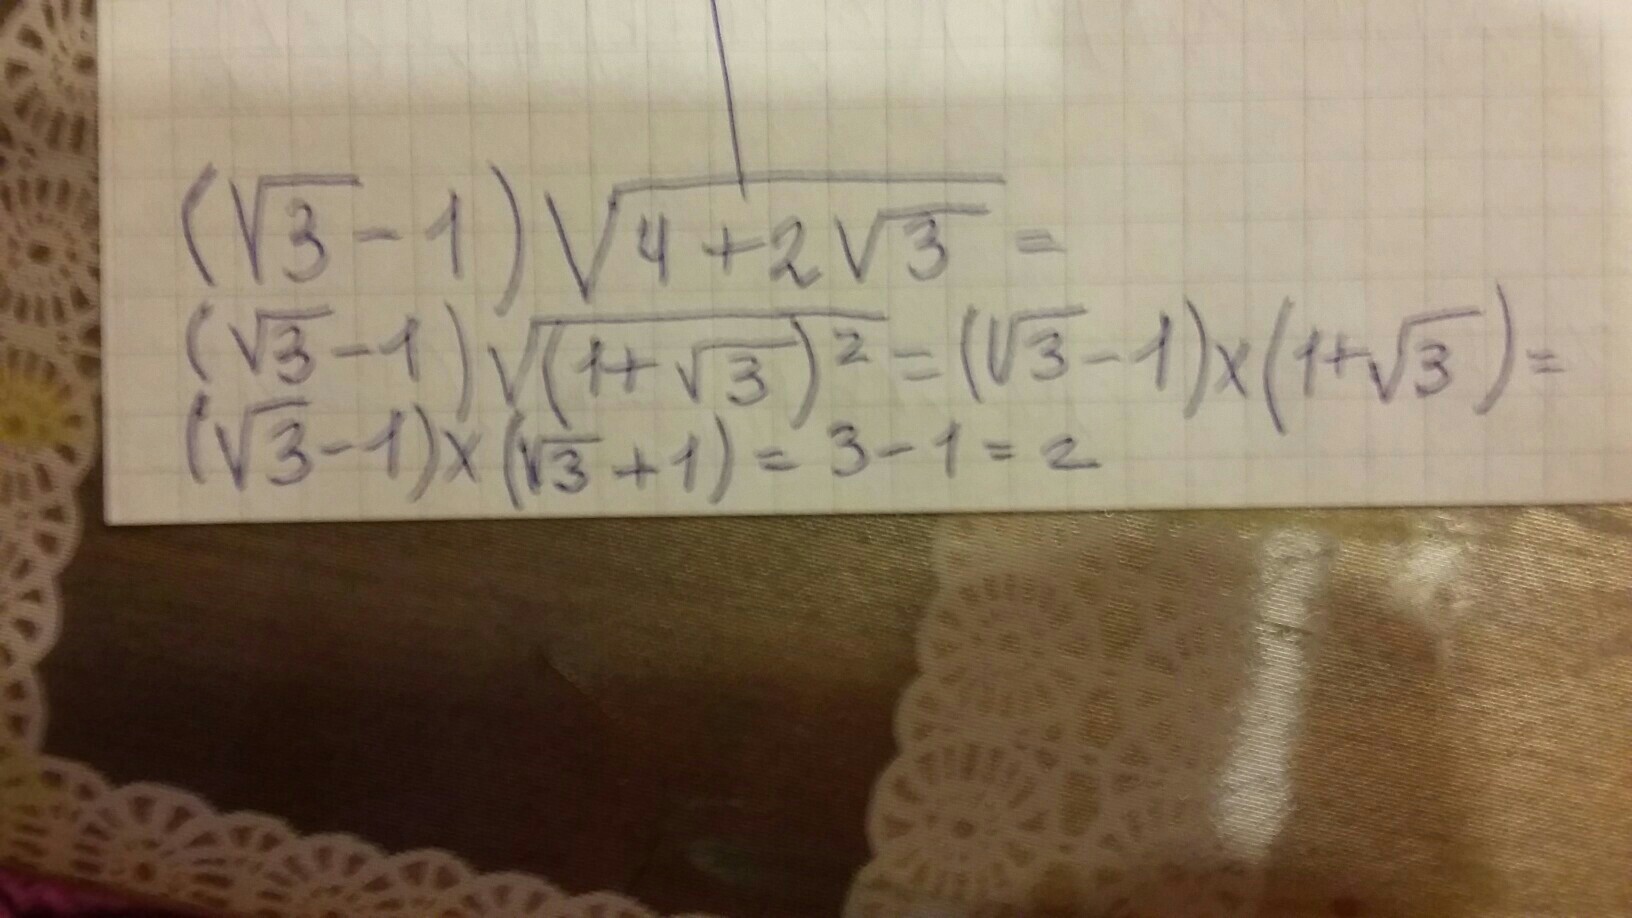 (√3-1)√(4+2√3) =
(√3-1)√((1+√3)²) = (√3-1)×(1+√3) =
(√3-1)×(√3+1) = 3-1 = 2